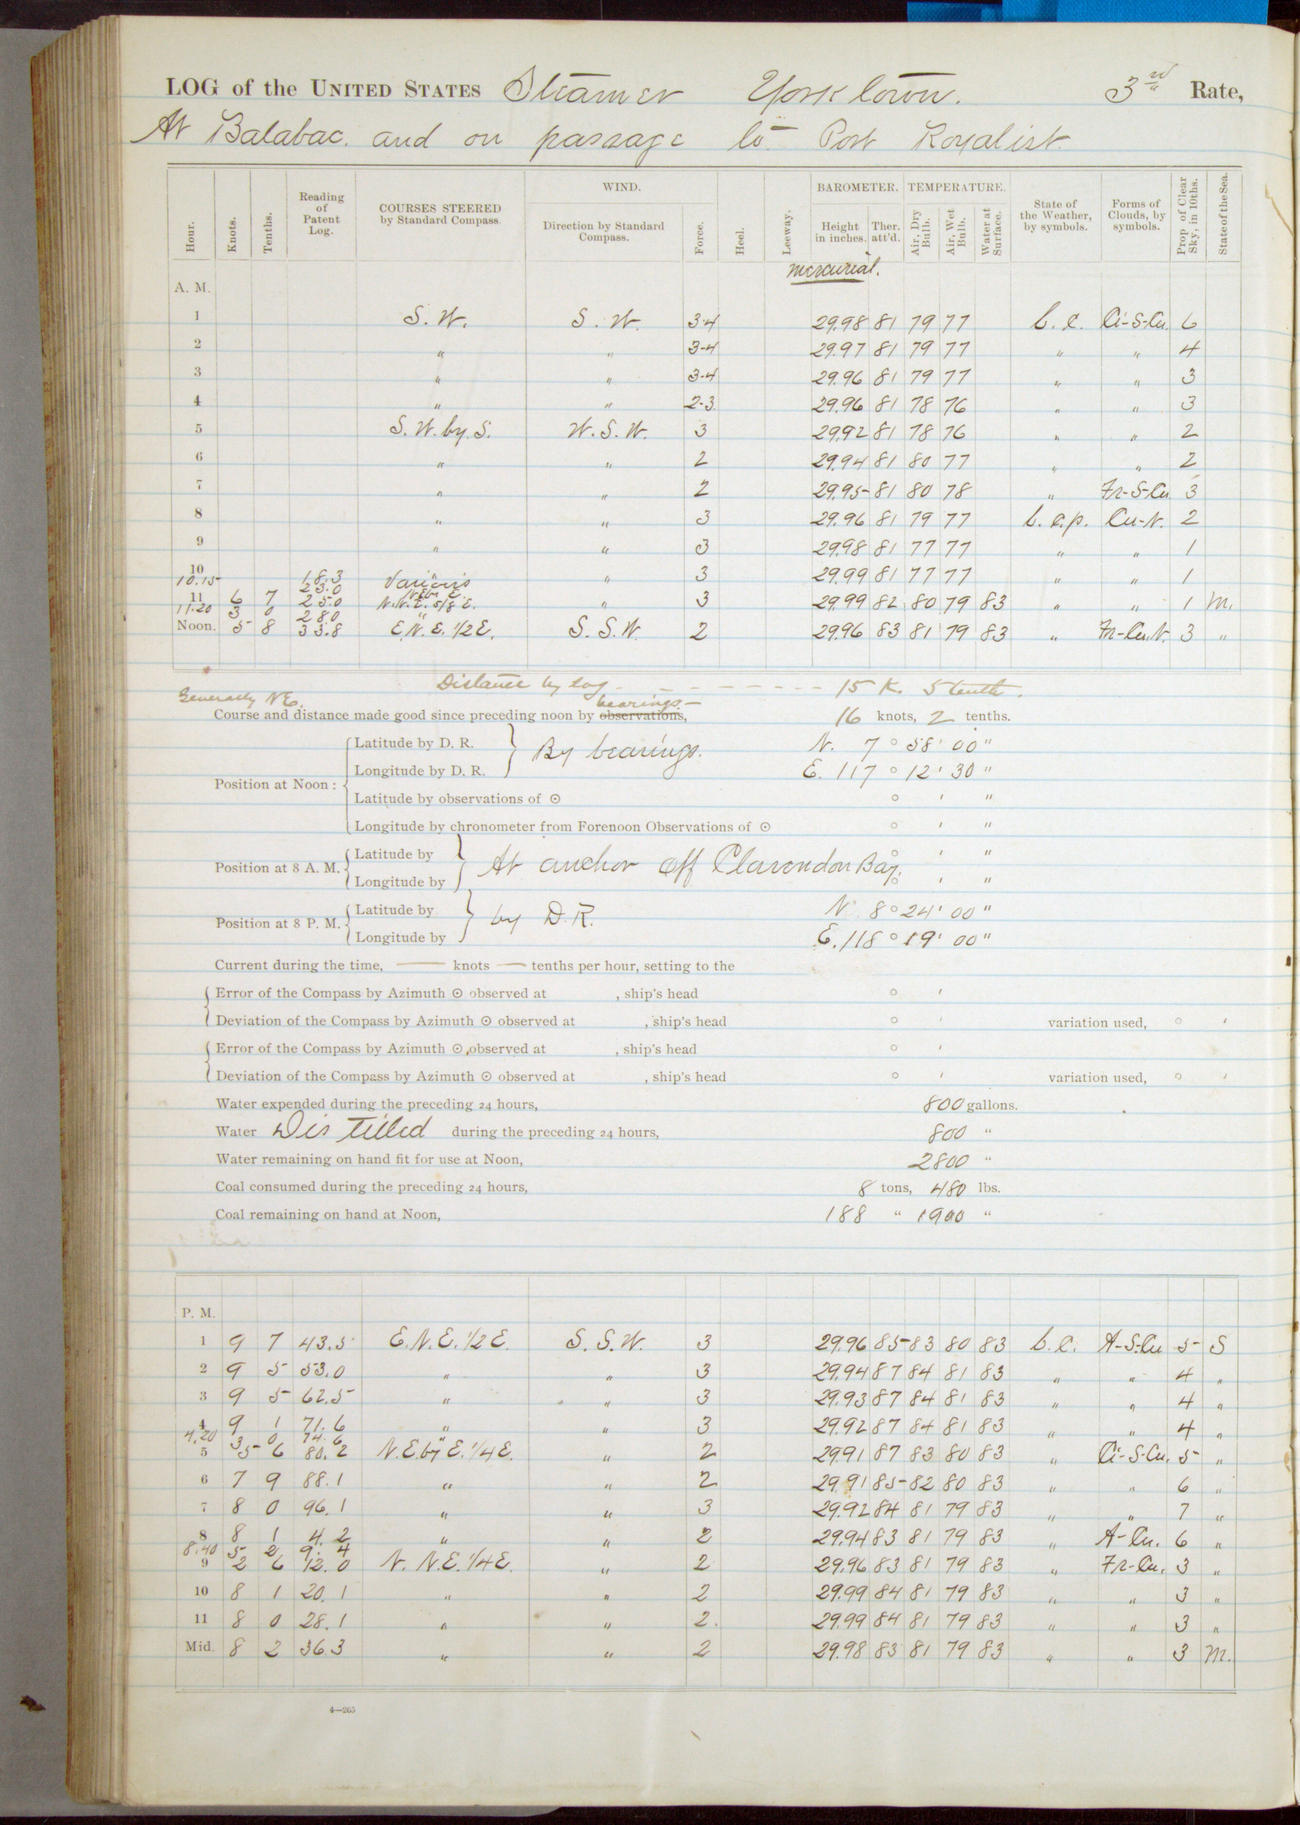 LOG of the UNITED STATES Steamer Yorktown. 3rd Rate,
At Balabac. and on passage to Port Royalist.
Hour. Knots. Tenths. Reading of Patent Log. COURSES STEERED by Standard Compass. WIND. Direction by Standard Compass. Force. Heel. Leeway. BAROMETER. Height in inches. Ther. att'd. TEMPERATURE. Air, Dry Bulb. Air, Wet Bulb. Water at Surface. State of the Weather, by symbols. Forms of Clouds, by symbols. Prop. of Clear Sky, in 10ths. State of the Sea.
mercurial.
A. M.
1 S. W. S. W. 3-4 29.98 81 79 77 b. c. Ci-S-Cu. 6
2 " " 3-4 29.97 81 79 77 " " 4
3 " " 3-4 29.96 81 79 77 " " 3
4 " " 2-3 29.96 81 78 76 " " 3
5 S. W. by S. W. S. W. 3 29.92 81 78 76 " " 2
6 " " 2 29.94 81 80 77 " " 2
7 " " 2 29.95 81 80 78 " Fr-S-Cu 3
8 " " 3 29.96 81 79 77 b. c. p. Cu-N. 2
9 " " 3 29.98 81 77 77 " " 1
10 " " 3 29.99 81 77 77 " " 1
10.15 18.3 Various
23.0 N.E. by E.
11 6 7 25.0 N.N.E. 5/8 E. " 3 29.99 82 80 79 83 " " 1 M.
11.20 3 0 28.0 "
Noon. 5 8 33.8 E.N.E. 1/2 E. S. S. W. 2 29.96 83 81 79 83 " Fr-Cu.N. 3 "
Distance by log - - - - - - - 15 K. 5 tenths.
Generally NE. bearings
Course and distance made good since preceding noon by observations, 16 knots, 2 tenths.
Position at Noon: Latitude by D. R. By bearings. N. 7° 58' 00"
Longitude by D. R. E. 117° 12' 30"
Latitude by observations of ☉ ° ' "
Longitude by chronometer from Forenoon Observations of ☉ ° ' "
Position at 8 A. M. Latitude by At anchor off Clarendon Bay. ° ' "
Longitude by ° ' "
Position at 8 P. M. Latitude by by D. R. N. 8° 24' 00"
Longitude by E. 118° 19' 00"
Current during the time, —— knots — tenths per hour, setting to the
Error of the Compass by Azimuth ☉ observed at , ship's head ° '
Deviation of the Compass by Azimuth ☉ observed at , ship's head ° ' variation used, ° '
Error of the Compass by Azimuth ☉ observed at , ship's head ° '
Deviation of the Compass by Azimuth ☉ observed at , ship's head ° ' variation used, ° '
Water expended during the preceding 24 hours, 800 gallons.
Water Distilled during the preceding 24 hours, 800 "
Water remaining on hand fit for use at Noon, 2800 "
Coal consumed during the preceding 24 hours, 8 tons, 480 lbs.
Coal remaining on hand at Noon, 188 " 1900 "
P. M.
1 9 7 43.5 E.N.E. 1/2 E. S. S. W. 3 29.96 85 83 80 83 b. c. A-S-Cu 5 S
2 9 5 53.0 " " 3 29.94 87 84 81 83 " " 4 "
3 9 5 62.5 " " 3 29.93 87 84 81 83 " " 4 "
4 9 1 71.6 " " 3 29.92 87 84 81 83 " " 4 "
4.20 3 0 74.6 "
5 5 6 80.2 N.E. by E. 1/4 E. " 2 29.91 87 83 80 83 " Ci-S-Cu. 5 "
6 7 9 88.1 " " 2 29.91 85 82 80 83 " " 6 "
7 8 0 96.1 " " 3 29.92 84 81 79 83 " " 7 "
8 8 1 4.2 " " 2 29.94 83 81 79 83 " A-Cu. 6 "
8.40 5 2 9.4
9 2 6 12.0 N. N.E. 1/4 E. " 2 29.96 83 81 79 83 " Fr-Cu. 3 "
10 8 1 20.1 " " 2 29.99 84 81 79 83 " " 3 "
11 8 0 28.1 " " 2. 29.99 84 81 79 83 " " 3 "
Mid. 8 2 36.3 " " 2 29.98 83 81 79 83 " " 3 M.
4—265